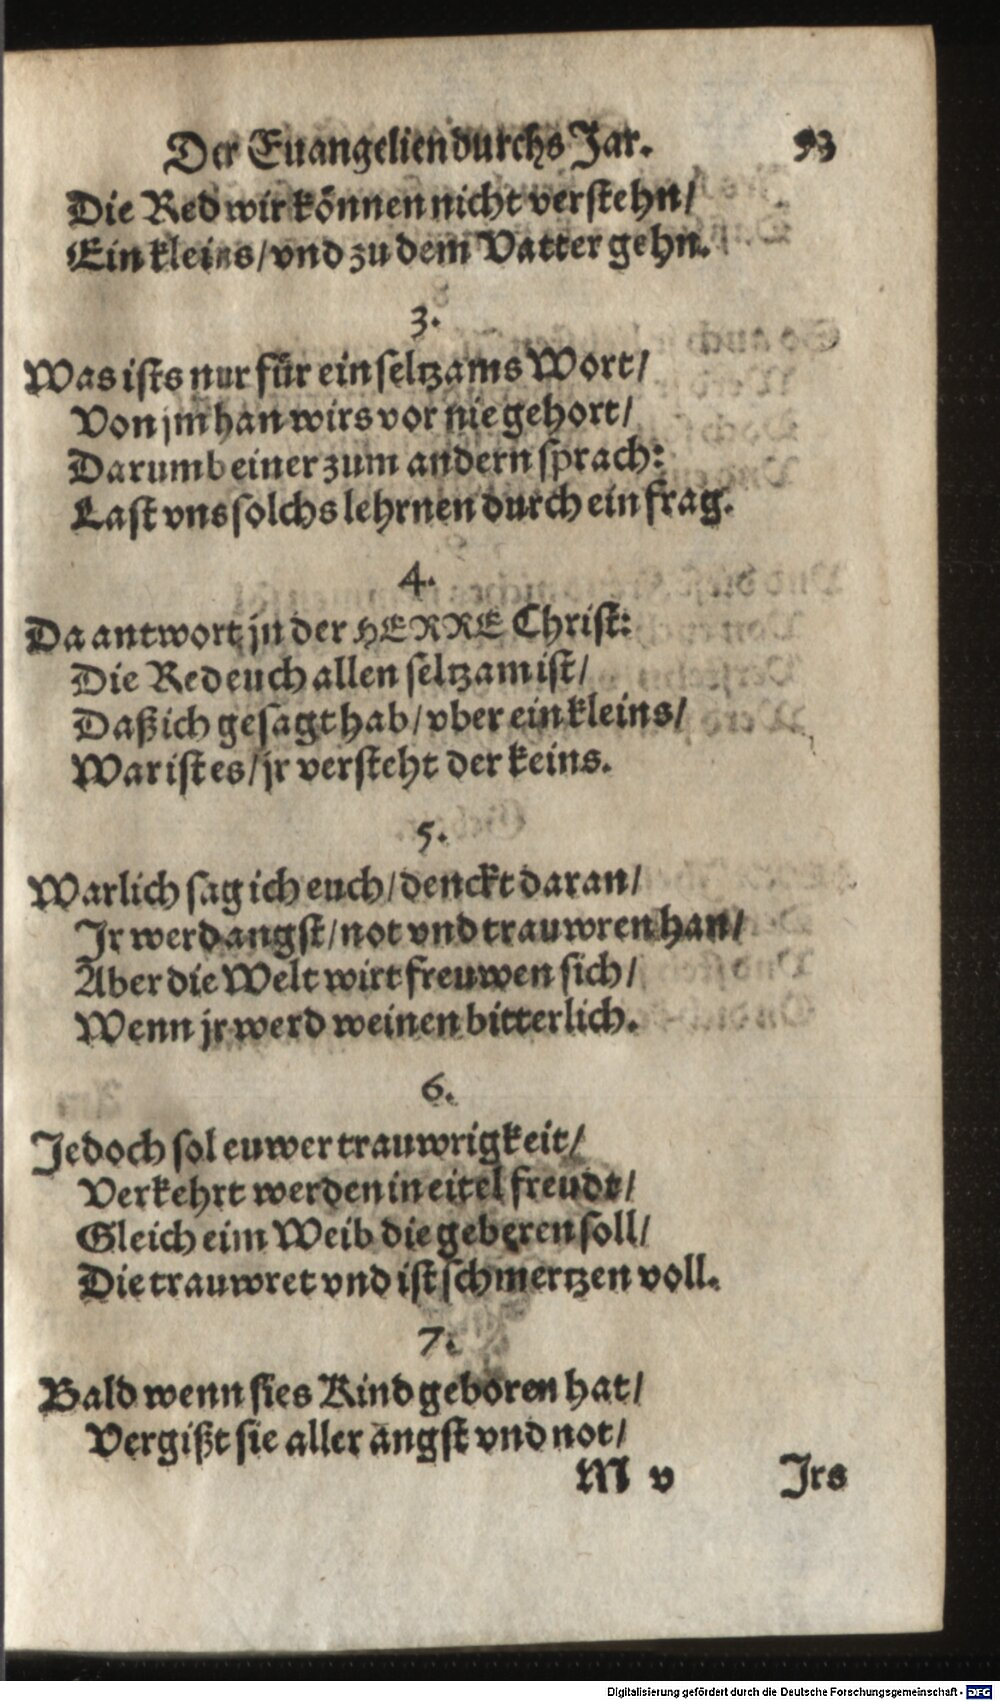 Der Euangelien durchs Jar. 93
Die Red wir können nicht verstehn/
Ein kleins/vnd zu dem Vatter gehn.
3.
Was ists nur für ein seltzams Wort/
Von jm han wirs vor nie gehort/
Darumb einer zum andern sprach:
Last vns solchs lehrnen durch ein frag.
4.
Da antwort jn der HERRE Christ:
Die Red euch allen seltzam ist/
Daß ich gesagt hab/vber ein kleins/
War ist es/jr versteht der keins.
5.
Warlich sag ich euch/denckt daran/
Jr werd angst/not vnd trauwren han/
Aber die Welt wirt freuwen sich/
Wenn jr werd weinen bitterlich.
6.
Jedoch sol euwer trauwrigkeit/
Verkehrt werden in eitel freudt/
Gleich eim Weib die geberen soll/
Die trauwret vnd ist schmertzen voll.
7.
Bald wenn sies Kind geboren hat/
Vergißt sie aller angst vnd not/
M v Jrs
Digitalisierung gefördert durch die Deutsche Forschungsgemeinschaft - DFG